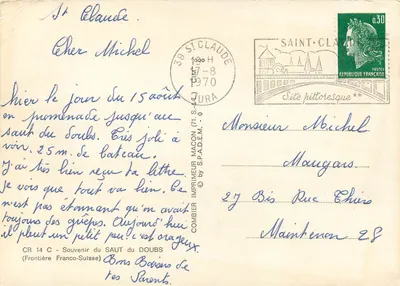 St Claude.
Cher Michel
hier le jour du 15 août
en promenade jusqu'au
saut du doubs. Très joli à
voir. 25 m. de bateau.
J'ai très bien reçu ta lettre
je vois que tout va bien. Ce
n'est pas étonnant qu'on avait
toujours des guêpes. Aujourd'hui
il pleut un petit peu c'est orageux
Bons Baisers de
tes Parents.
CR 14 C - Souvenir du SAUT du DOUBS
(Frontière Franco-Suisse)
COMBIER IMPRIMEUR MACON
© by S.P.A.D.E.M.
39 ST CLAUDE
H
17-8
1970
JURA
SAINT-CLA
Site pittoresque
0,30
POSTES
REPUBLIQUE FRANÇAISE
Monsieur Michel
Maugars
27 Bis Rue Thiers
Maintenon 28